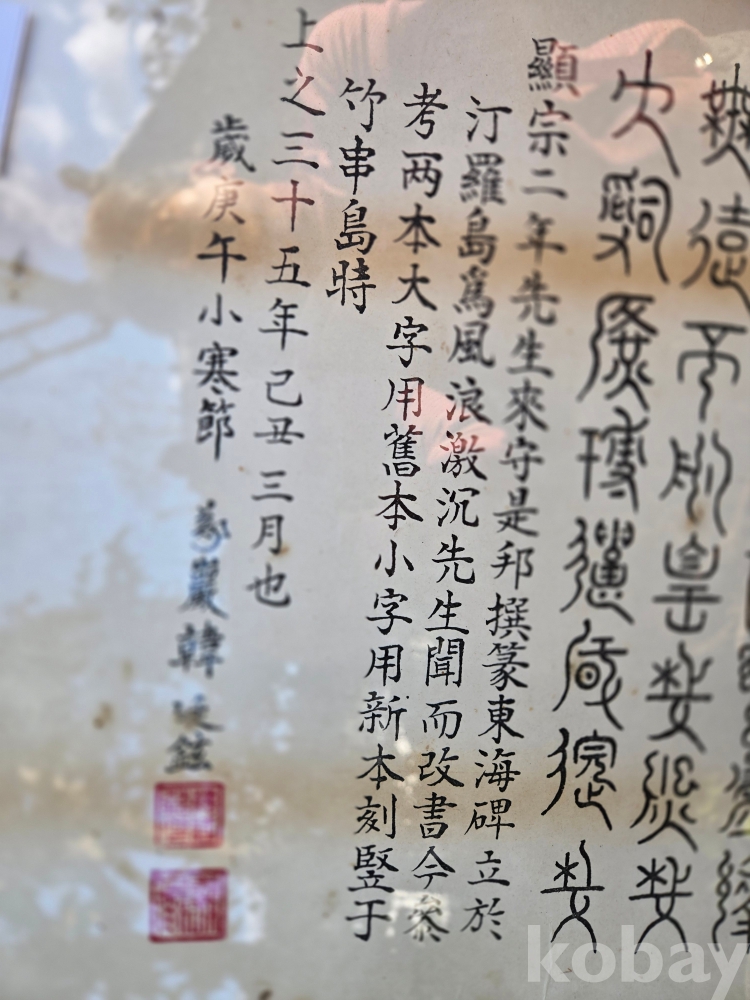 無遠不服皇哉熙哉
大治廣博遺風邈哉
顯宗二年先生來守是邦撰篆東海碑立於
汀羅島爲風浪激沉先生聞而改書今叅
考两本大字用舊本小字用新本刻竪于
竹串島時
上之三十五年己丑三月也
歲庚午小寒節 巖韓鉉
kobay